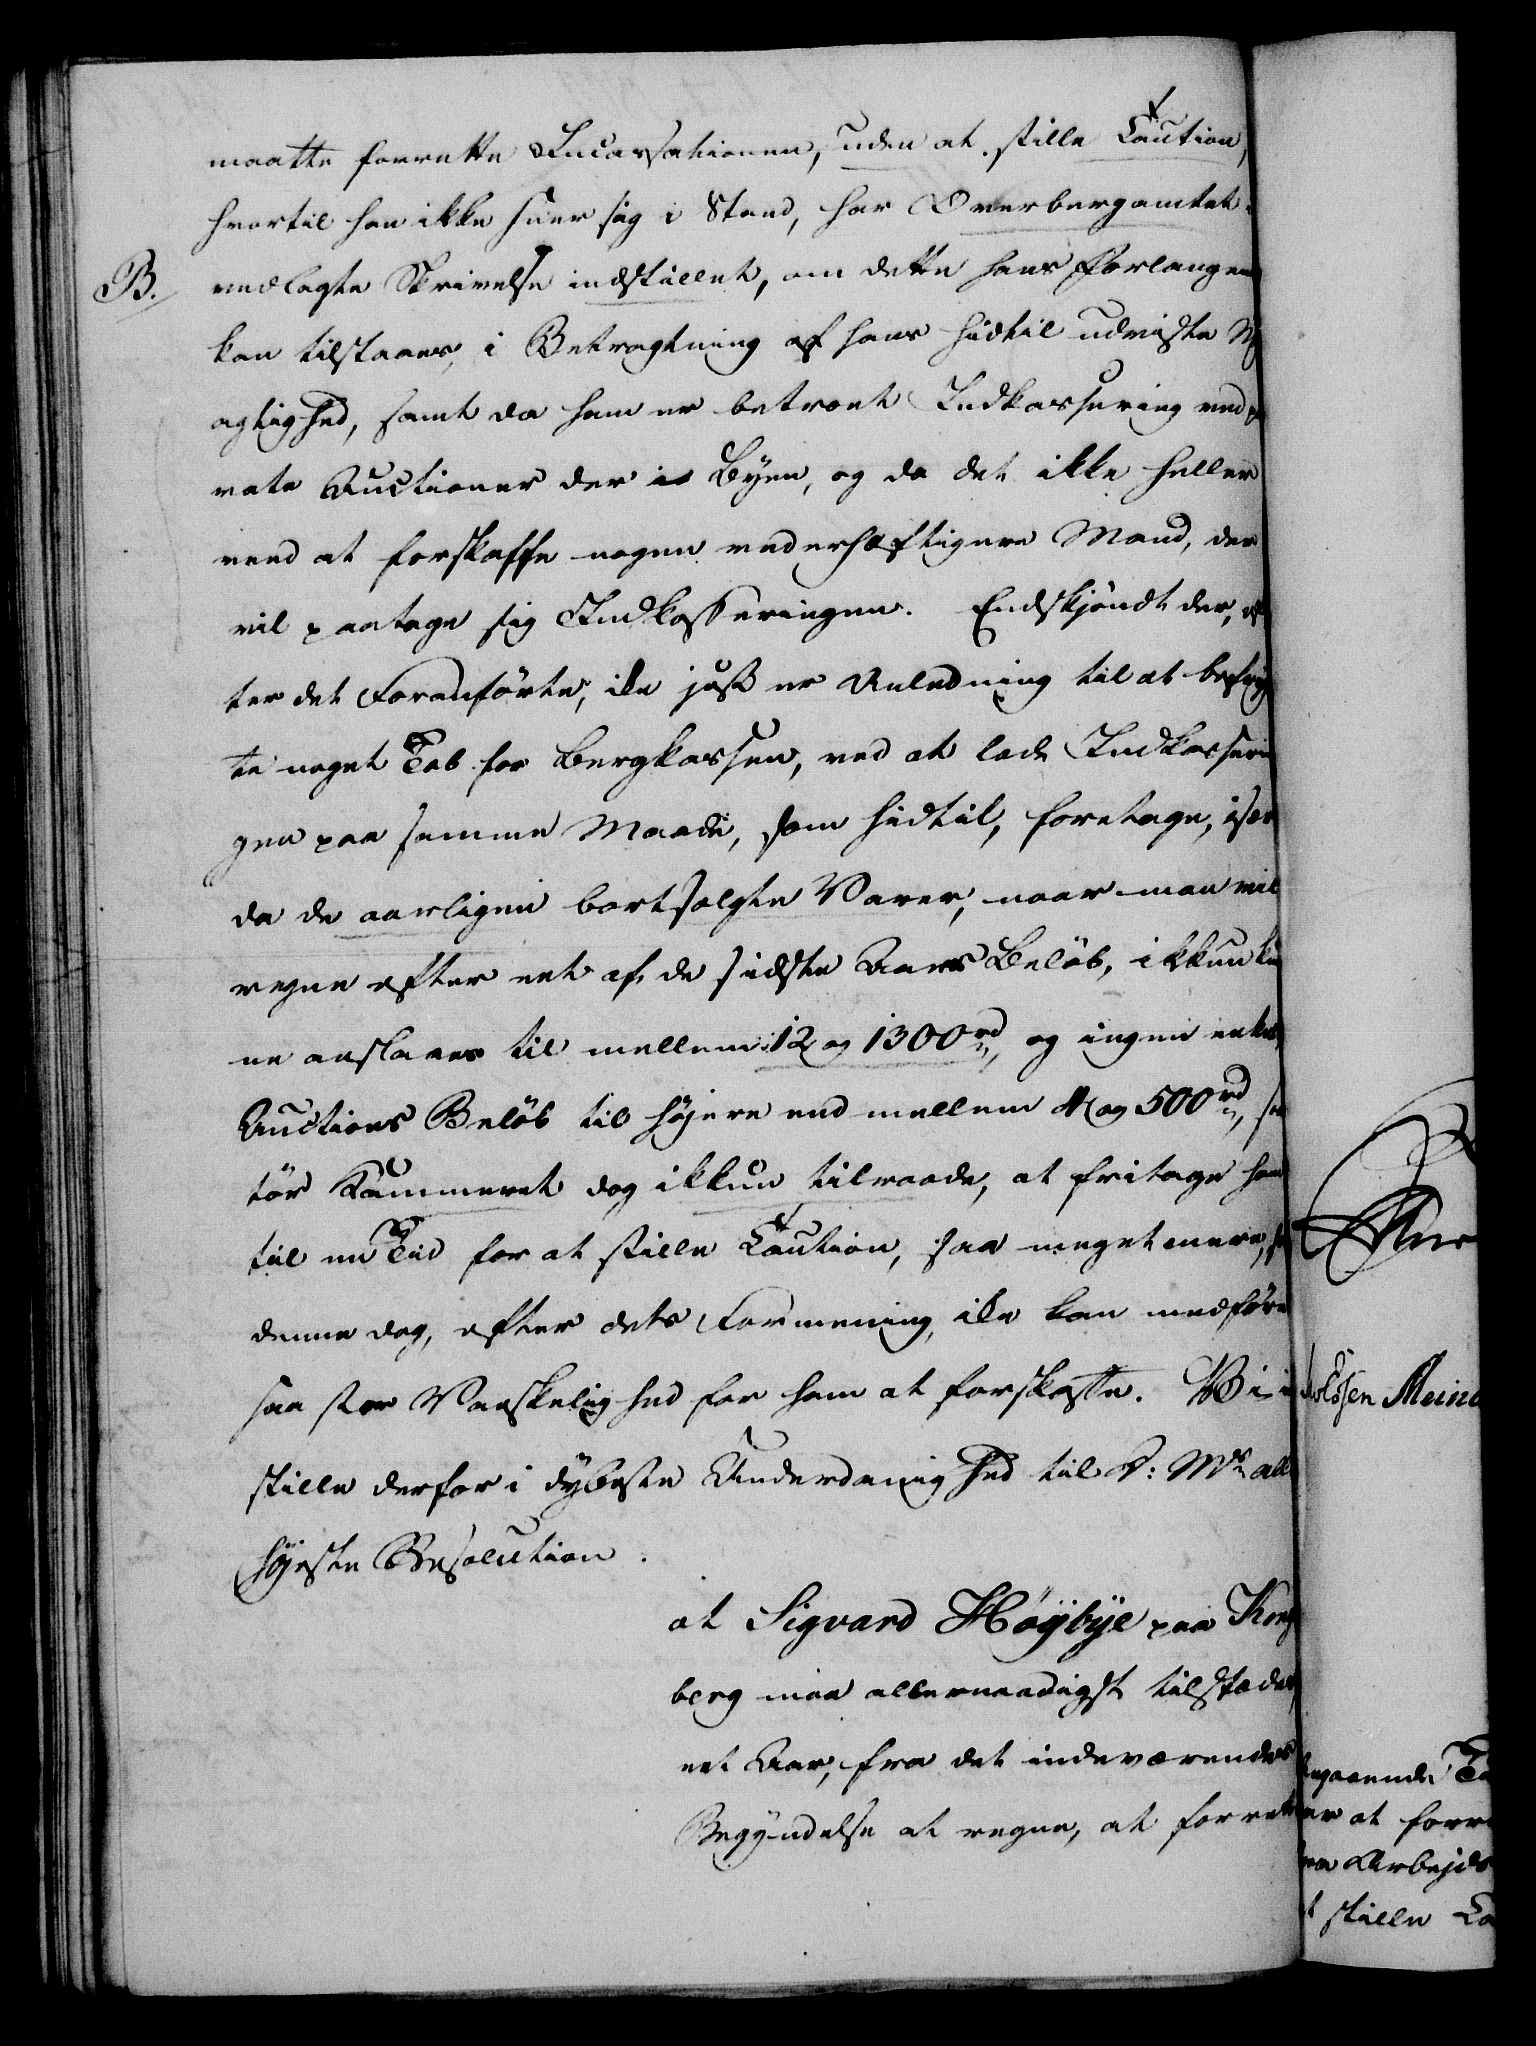 maatte forrette Incassationen, uden at stille Caution,
hvortil han ikke seer sig i Stand, har Overbergamtet i
B. vedlagte Skrivelse indstillet, om dette hans Forlangen
kan tilstaaes, i Betragtning af hans hidtil udviste
agtighed, samt da ham er betroet Indkassering ved
vate Auctioner der i Byen, og da det ikke heller
veed at forskaffe nogen vederhæftigere Mand, der
vil paatage sig Indkasseringen. Endskjöndt der, ef
ter det Foranførte, ikke just er Anledning til at befryg
te noget Tab for Bergkassen, ved at lade Indkasserin
gen paa samme Maade, som hidtil, foretage, især
da de aarligen bortsolgte Varer, naar man vil
regne efter eet af de sidste Aars Beløb, ikkun kun
ne anslaaes til mellem 12 og 1300 rd, og ingen enkelt
Auctions Beløb til højere end mellem 4 og 500 rd, saa
tör Kammeret dog ikkun tilraade, at fritage ham
til en Tid for at stille Caution, saa meget mere, som
denne dog, efter dets Formening, ikke kan medføre
saa stor Vanskelighed for ham at forskaffe. Vi in
stille derfor i dybeste Underdanighed til D: Mts aller
højeste Resolution.
at Sigvard Høybye paa Kongs
berg maa allernaadigst tilstædes,
eet Aar, fra det indeværendes
Begyndelse at regne, at forrette